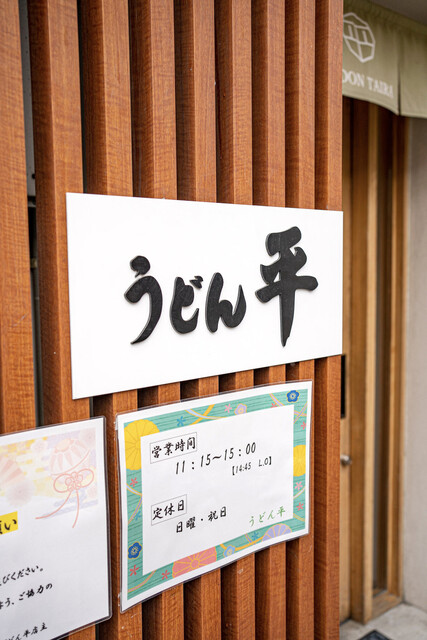 DON TAIRA
うどん 平
営業時間
11：15～15：00
【14:45 L.O】
定休日
日曜・祝日
うどん平
びください。
う、ご協力の
どん平店主